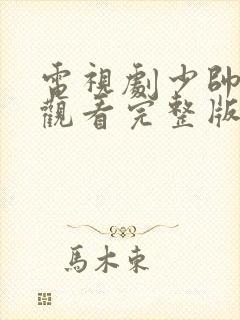 電視劇少帥
觀看完整版
馬木東